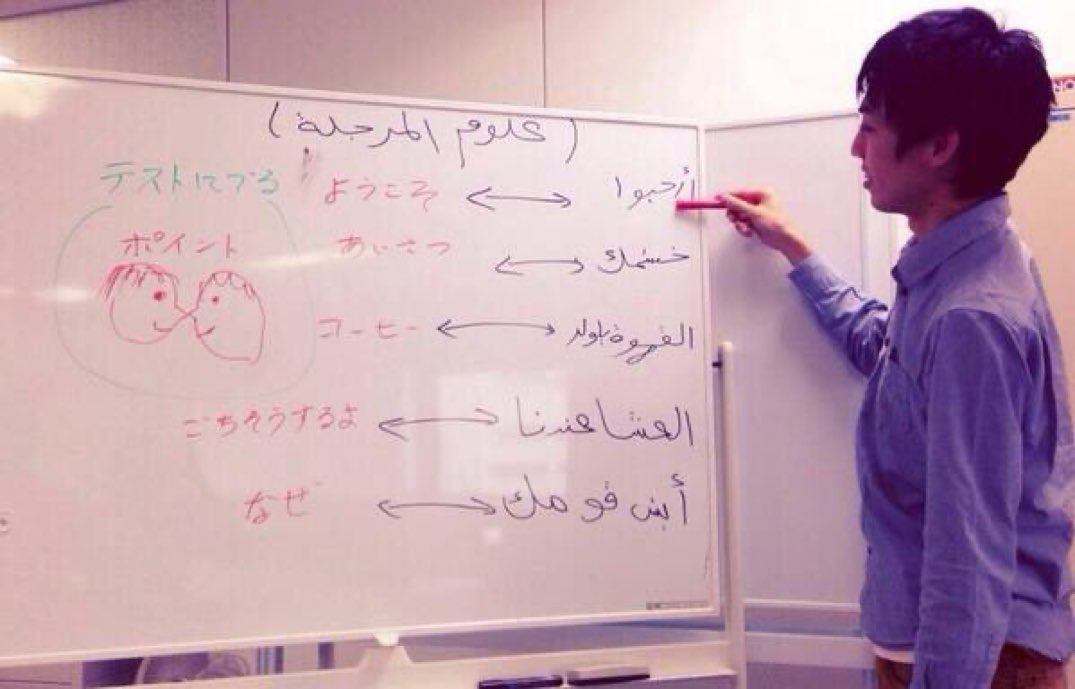 (علوم المرجلة)
テストにでる
ポイント
ようこそ ↔ أرحبوا
あいさつ ↔ خشمك
コーヒー ↔ القهوة ياولد
ごちそうするよ ↔ العشا عندنا
なぜ ↔